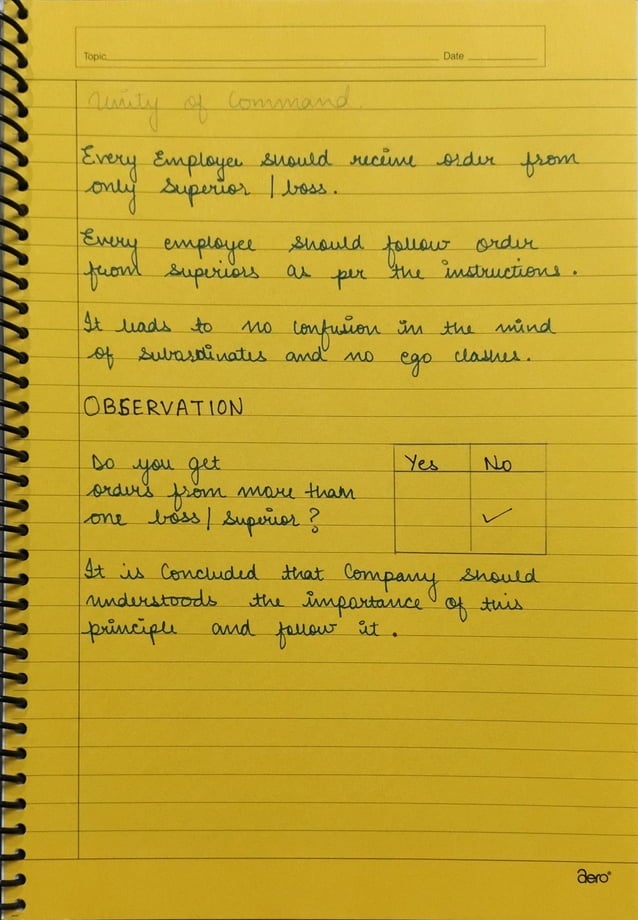 Topic Date
Unity of Command.
Every Employee should receive order from
only Superior / boss.
Every employee should follow order
from superiors as per the instructions.
It leads to no confusion in the mind
of subordinates and no ego clashes.
OBSERVATION
Do you get Yes No
orders from more than
one boss/ Superior? ✓
It is Concluded that Company should
understoods the importance of this
principle and follow it.
aero